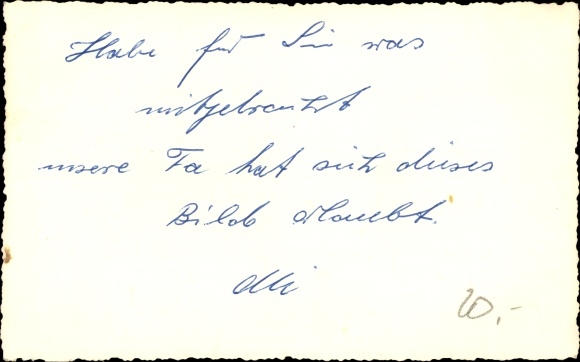 Habe für Sie was
mitgebracht
unsere Fa hat sich dieses
Bild erlaubt.
20.-